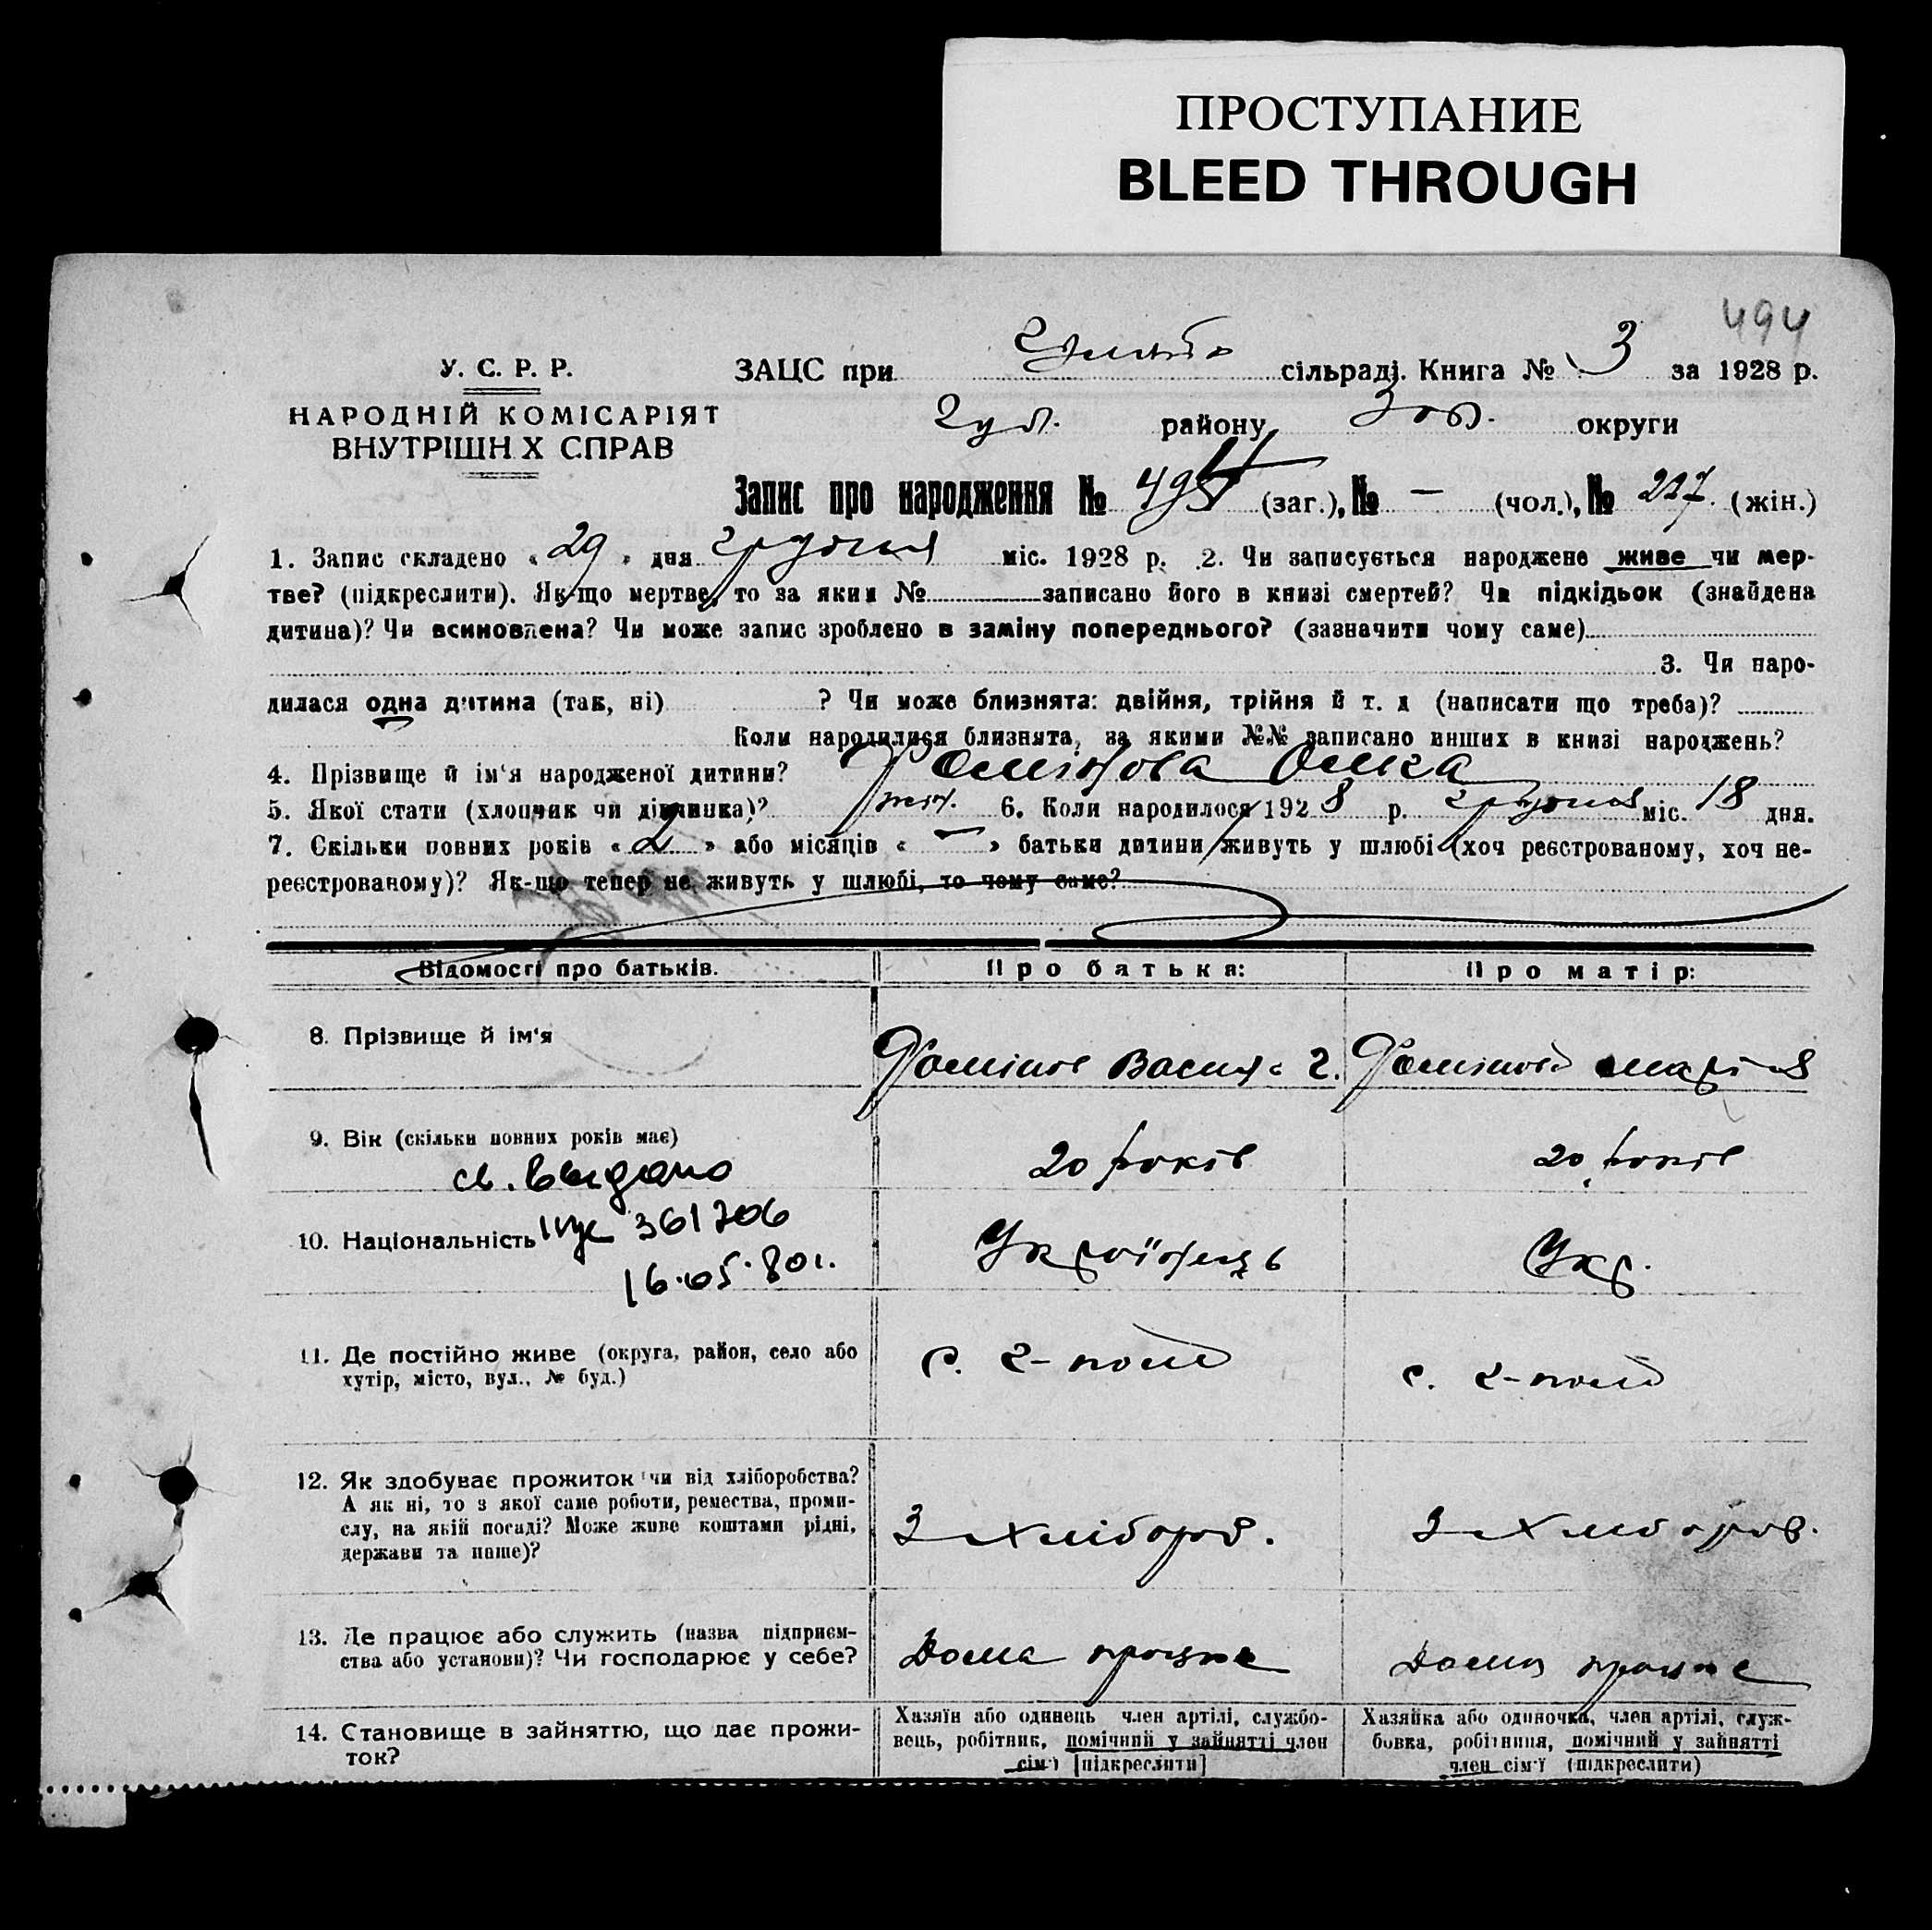 ПРОСТУПАНИЕ
BLEED THROUGH
494
У. С. Р. Р.
НАРОДНІЙ КОМІСАРІЯТ
ВНУТРІШН Х СПРАВ
ЗАЦС при сільраді. Книга № 3 за 1928 р.
району округи
Запис про народження № 494 (заг.), № — (чол.), № 227 (жін.)
1. Запис складено « 29 » дня грудня міс. 1928 р. 2. Чи записується народжене живе чи мер-
тве? (підкреслити). Як-що мертве, то за яким № записано його в книзі смертей? Чи підкідьок (знайдена
дитина)? Чи всиновлена? Чи може запис зроблено в заміну попереднього? (зазначити чому саме)
3. Чи наро-
дилася одна дитина (так, ні) ? Чи може близнята: двійня, трійня й т. д (написати що треба)?
Коли народилися близнята, за якими №№ записано инших в книзі народжень?
4. Прізвище й ім'я народженої дитини? Фомінова
5. Якої стати (хлопчик чи дівчинка)? жін. 6. Коли народилося 1928 р. грудня міс. 18 дня.
7. Скільки повних років « 2 » або місяців « — » батьки дитини живуть у шлюбі (хоч реєстрованому, хоч не-
реєстрованому)? Як-що тепер не живуть у шлюбі, то чому саме?
Відомості про батьків.
Про батька:
Про матір:
8. Прізвище й ім'я
Фомінов Василь Г.
Фомінова Марія
9. Вік (скільки повних років має)
20 років
20 років
св. выдано
10. Національність
361706
16.05.80г.
Українець
Укр.
11. Де постійно живе (округа, район, село або
хутір, місто, вул., № буд.)
с. Г-поле
с. Г-поле
12. Як здобуває прожиток чи від хліборобства?
А як ні, то з якої саме роботи, ремества, проми-
слу, на якій посаді? Може живе коштами рідні,
держави та инше)?
З хлібороб.
З хлібороб.
13. Де працює або служить (назва підприєм-
ства або установи)? Чи господарює у себе?
Дома працює
Дома працює
14. Становище в зайняттю, що дає прожи-
ток?
Хазяїн або одинець член артілі, службо-
вець, робітник, помічний у зайнятті член
сім'ї [підкреслити]
Хазяйка або одиночка, член артілі, служ-
бовка, робітниця, помічний у зайнятті
член сім'ї (підкреслити)